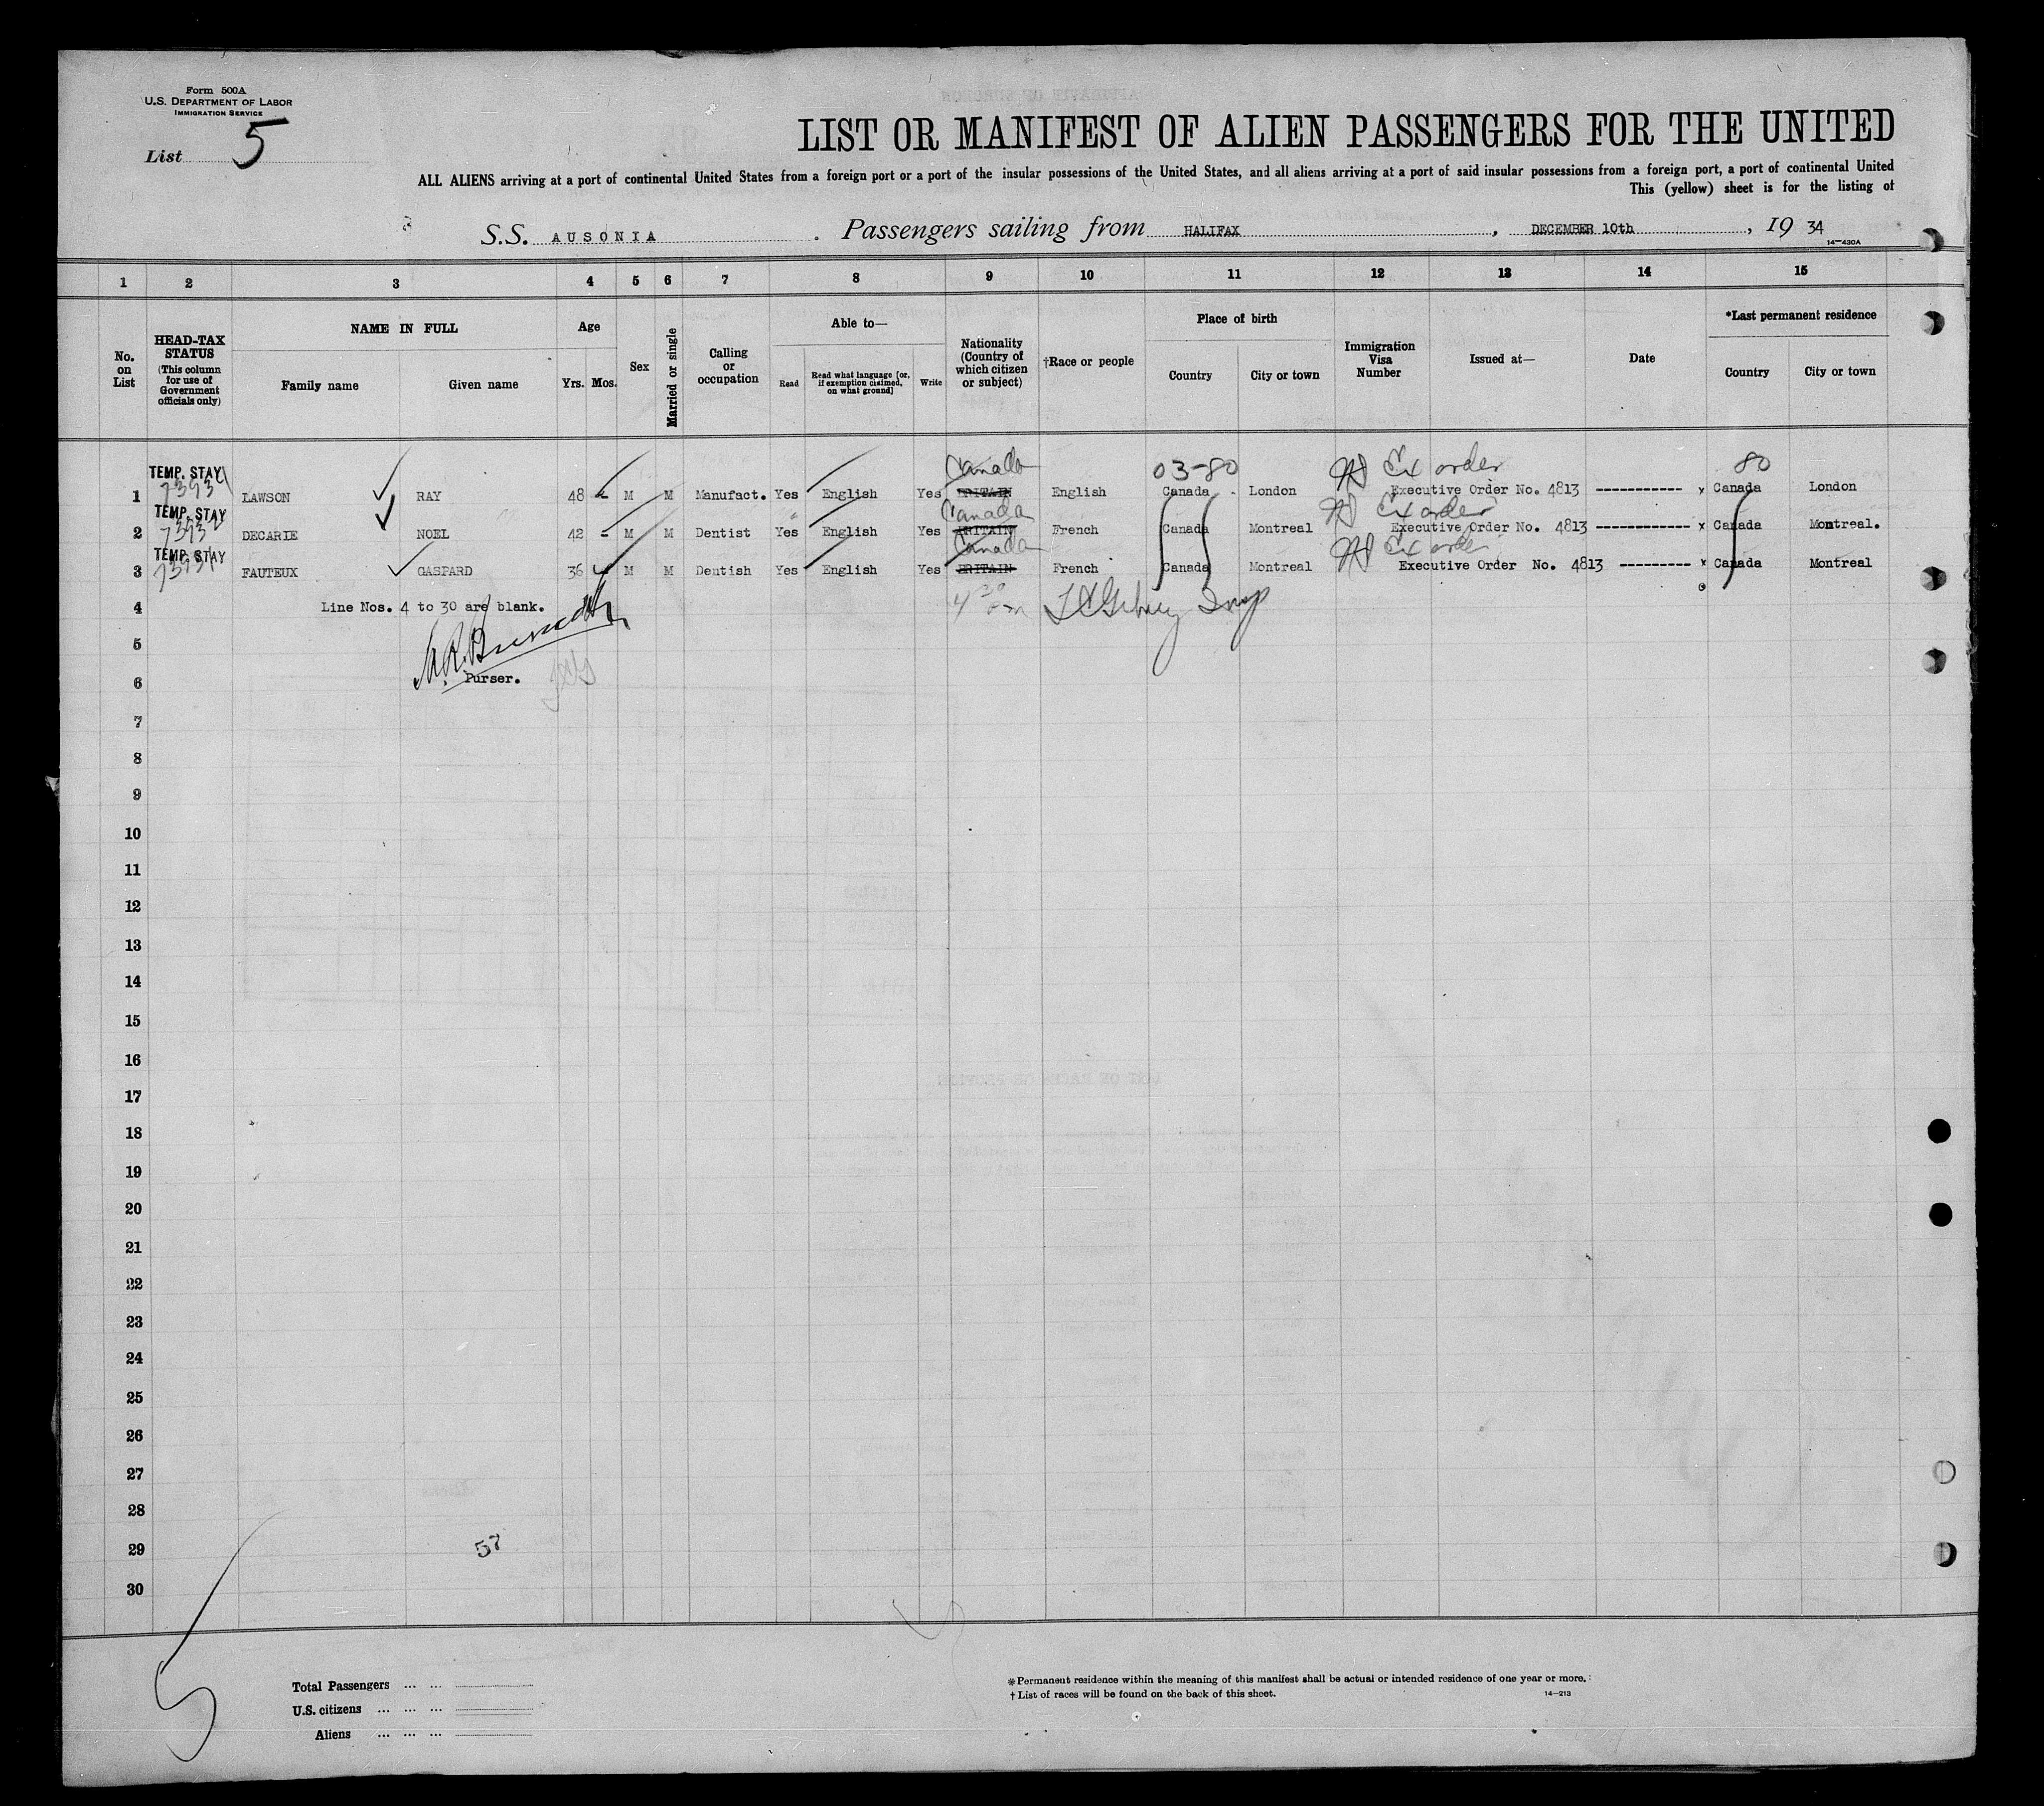 Form 500A
U.S. DEPARTMENT OF LABOR
IMMIGRATION SERVICE
List 5
LIST OR MANIFEST OF ALIEN PASSENGERS FOR THE UNITED
ALL ALIENS arriving at a port of continental United States from a foreign port or a port of the insular possessions of the United States, and all aliens arriving at a port of said insular possessions from a foreign port, a port of continental United
This (yellow) sheet is for the listing of
S.S. AUSONIA . Passengers sailing from HALIFAX , DECEMBER 10th , 19 34
14—430A
1 2 3 4 5 6 7 8 9 10 11 12 13 14 15
No. on List
HEAD-TAX STATUS (This column for use of Government officials only)
NAME IN FULL
Family name Given name
Age
Yrs. Mos.
Sex
Married or single
Calling or occupation
Able to—
Read Read what language [or, if exemption claimed, on what ground] Write
Nationality (Country of which citizen or subject)
†Race or people
Place of birth
Country City or town
Immigration Visa Number
Issued at—
Date
*Last permanent residence
Country City or town
TEMP. STAY Canada 03-80 Ex order 80
1 LAWSON RAY 48 - M M Manufact. Yes English Yes BRITAIN English Canada London Executive Order No. 4813 ----------- x Canada London
TEMP. STAY Canada Ex order
2 DECARIE NOEL 42 - M M Dentist Yes English Yes BRITAIN French Canada Montreal Executive Order No. 4813 ------------ x Canada Montreal.
TEMP. STAY Canada Ex order
3 FAUTEUX GASPARD 36 M M Dentish Yes English Yes BRITAIN French Canada Montreal Executive Order No. 4813 --------- x Canada Montreal
4 Line Nos. 4 to 30 are blank.
5
6 Purser.
7
8
9
10
11
12
13
14
15
16
17
18
19
20
21
22
23
24
25
26
27
28
29 57
30
5
Total Passengers ... ...
U.S. citizens ... ... ...
Aliens ... ... ...
*Permanent residence within the meaning of this manifest shall be actual or intended residence of one year or more.
† List of races will be found on the back of this sheet.
14—213